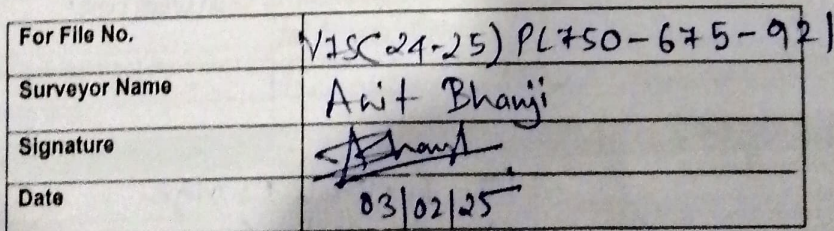 For File No. VIS(24-25) PL750-675-921
Surveyor Name Anit Bhanji
Signature
Date 03/02/25